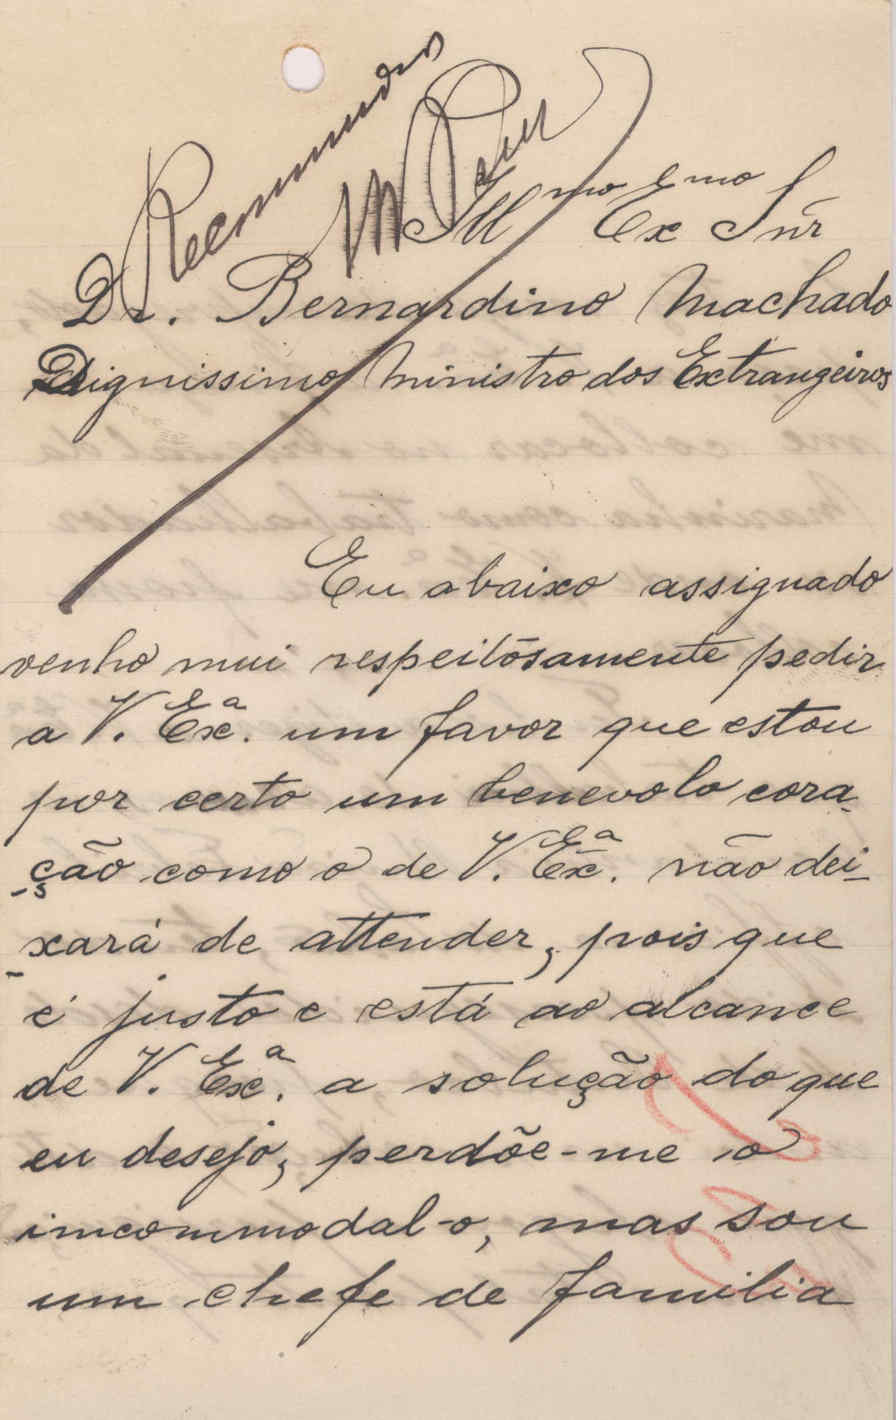 Recommendo
Illmo Exmo Snr
Dr. Bernardino Machado
Dignissimo Ministro dos Extrangeiros
Eu abaixo assignado
venho mui respeitósamente pedir
a V. Exa. um favor que estou
por certo um benevolo cora-
-ção como o de V. Exa. não dei-
-xará de attender, pois que
é justo e está ao alcance
de V. Exa. a solução do que
eu desejo, perdõe-me o
imcommodal-o, mas sou
um chefe de familia